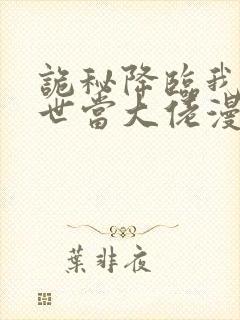 詭秘降臨我
世當大佬漫
葉非夜